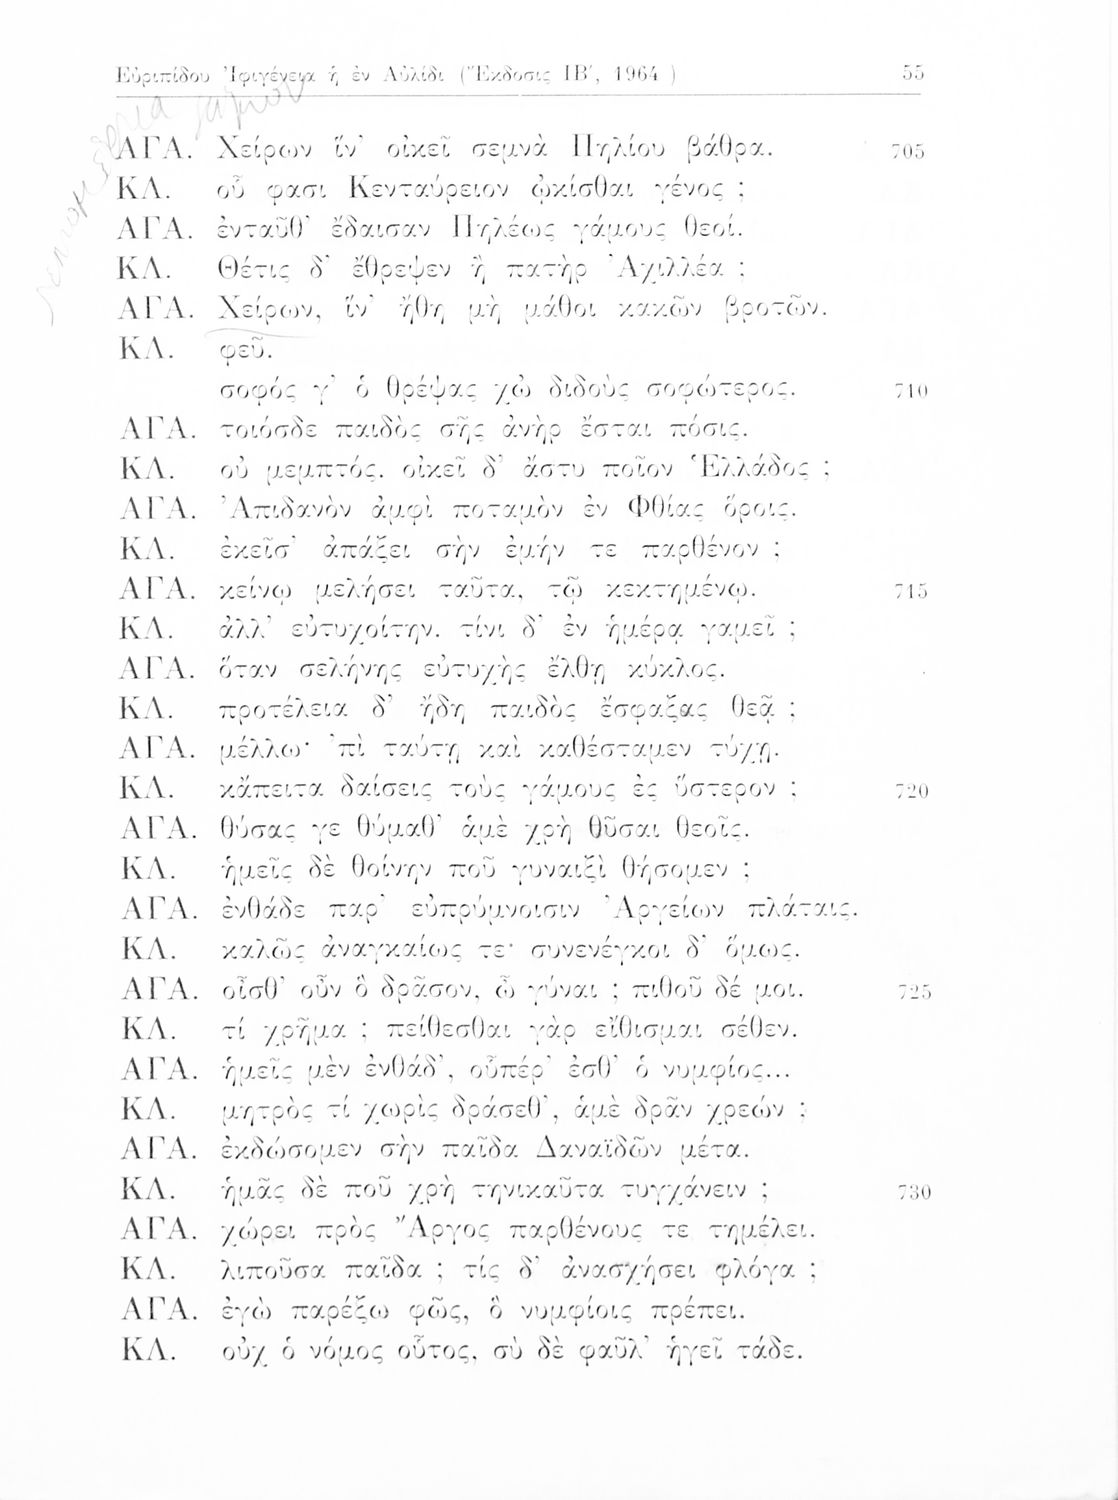 Εὐριπίδου Ἰφιγένεια ἡ ἐν Αὐλίδι (Ἔκδοσις ΙΒ΄, 1964 ) 55
ΑΓΑ. Χείρων ἵν' οἰκεῖ σεμνὰ Πηλίου βάθρα. 705
ΚΛ. οὗ φασι Κενταύρειον ᾠκίσθαι γένος ;
ΑΓΑ. ἐνταῦθ' ἔδαισαν Πηλέως γάμους θεοί.
ΚΛ. Θέτις δ' ἔθρεψεν ἢ πατὴρ Ἀχιλλέα ;
ΑΓΑ. Χείρων, ἵν' ἤθη μὴ μάθοι κακῶν βροτῶν.
ΚΛ. φεῦ.
σοφός γ' ὁ θρέψας χὠ διδοὺς σοφώτερος. 710
ΑΓΑ. τοιόσδε παιδὸς σῆς ἀνὴρ ἔσται πόσις.
ΚΛ. οὐ μεμπτός. οἰκεῖ δ' ἄστυ ποῖον Ἑλλάδος ;
ΑΓΑ. Ἀπιδανὸν ἀμφὶ ποταμὸν ἐν Φθίας ὅροις.
ΚΛ. ἐκεῖσ' ἀπάξει σὴν ἐμήν τε παρθένον ;
ΑΓΑ. κείνῳ μελήσει ταῦτα, τῷ κεκτημένῳ. 715
ΚΛ. ἀλλ' εὐτυχοίτην. τίνι δ' ἐν ἡμέρᾳ γαμεῖ ;
ΑΓΑ. ὅταν σελήνης εὐτυχὴς ἔλθῃ κύκλος.
ΚΛ. προτέλεια δ' ἤδη παιδὸς ἔσφαξας θεᾷ ;
ΑΓΑ. μέλλω· 'πὶ ταύτῃ καὶ καθέσταμεν τύχῃ.
ΚΛ. κἄπειτα δαίσεις τοὺς γάμους ἐς ὕστερον ; 720
ΑΓΑ. θύσας γε θύμαθ' ἁμὲ χρὴ θῦσαι θεοῖς.
ΚΛ. ἡμεῖς δὲ θοίνην ποῦ γυναιξὶ θήσομεν ;
ΑΓΑ. ἐνθάδε παρ' εὐπρύμνοισιν Ἀργείων πλάταις.
ΚΛ. καλῶς ἀναγκαίως τε· συνενέγκοι δ' ὅμως.
ΑΓΑ. οἶσθ' οὖν ὃ δρᾶσον, ὦ γύναι ; πιθοῦ δέ μοι. 725
ΚΛ. τί χρῆμα ; πείθεσθαι γὰρ εἴθισμαι σέθεν.
ΑΓΑ. ἡμεῖς μὲν ἐνθάδ', οὗπέρ' ἐσθ' ὁ νυμφίος...
ΚΛ. μητρὸς τί χωρὶς δράσεθ', ἁμὲ δρᾶν χρεών ;
ΑΓΑ. ἐκδώσομεν σὴν παῖδα Δαναϊδῶν μέτα.
ΚΛ. ἡμᾶς δὲ ποῦ χρὴ τηνικαῦτα τυγχάνειν ; 730
ΑΓΑ. χώρει πρὸς Ἄργος παρθένους τε τημέλει.
ΚΛ. λιποῦσα παῖδα ; τίς δ' ἀνασχήσει φλόγα ;
ΑΓΑ. ἐγὼ παρέξω φῶς, ὃ νυμφίοις πρέπει.
ΚΛ. οὐχ ὁ νόμος οὗτος, σὺ δὲ φαῦλ' ἡγεῖ τάδε.